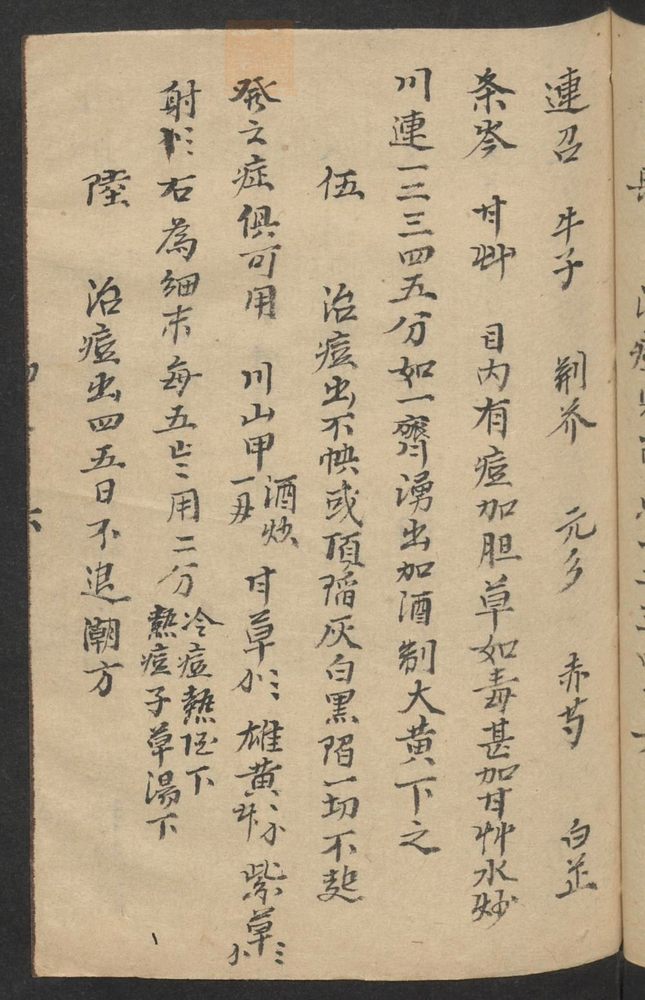 連召 牛子 荆芥 元参 赤芍 白芷
条岑 甘艸 目内有痘加胆草如毒甚加甘艸水炒
川連一二三四五分如一齊湧出加酒制大黄下之
伍 治痘出不快或頂陷灰白黑陷一切不起
發之症俱可用 川山甲 酒炒 甘草 雄黄 紫草
射 右為細末每五 用二分 冷痘熱酒下
熱痘子草湯下
陸 治痘出四五日不退潮方